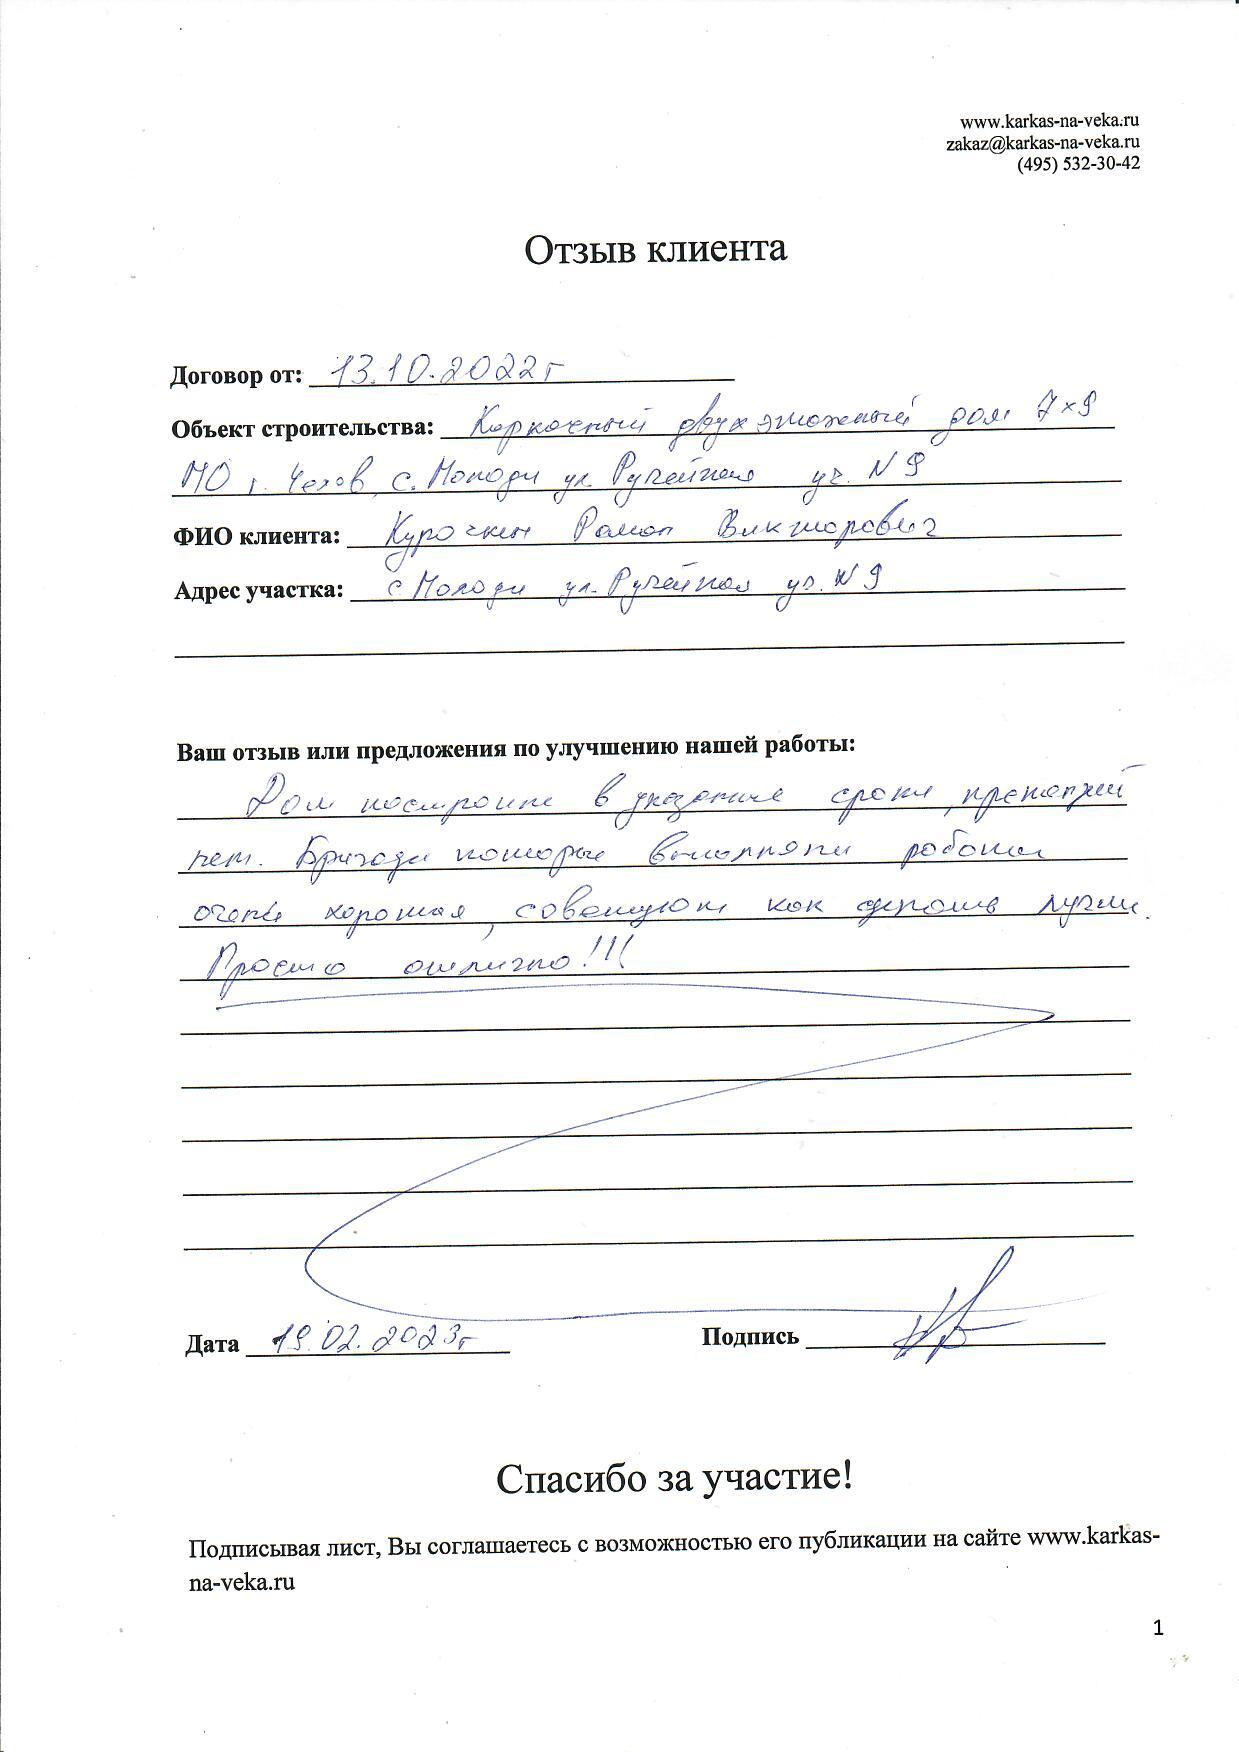 www.karkas-na-veka.ru
zakaz@karkas-na-veka.ru
(495) 532-30-42
Отзыв клиента
Договор от: 13.10.2022г
Объект строительства: Каркасный двухэтажный дом 7×9
МО г. Чехов с. Молоди ул. Ручейная уч. N 9
ФИО клиента: Курочкин Роман Викторович
Адрес участка: с Молоди ул. Ручейная уч. N 9
Ваш отзыв или предложения по улучшению нашей работы:
Дом построили в указанные сроки, претензий
нет. Бригада которые выполняли работы
очень хорошая, советуют как сделать лучше.
Просто отлично!!!
Дата 19.02.2023г Подпись
Спасибо за участие!
Подписывая лист, Вы соглашаетесь с возможностью его публикации на сайте www.karkas-
na-veka.ru
1